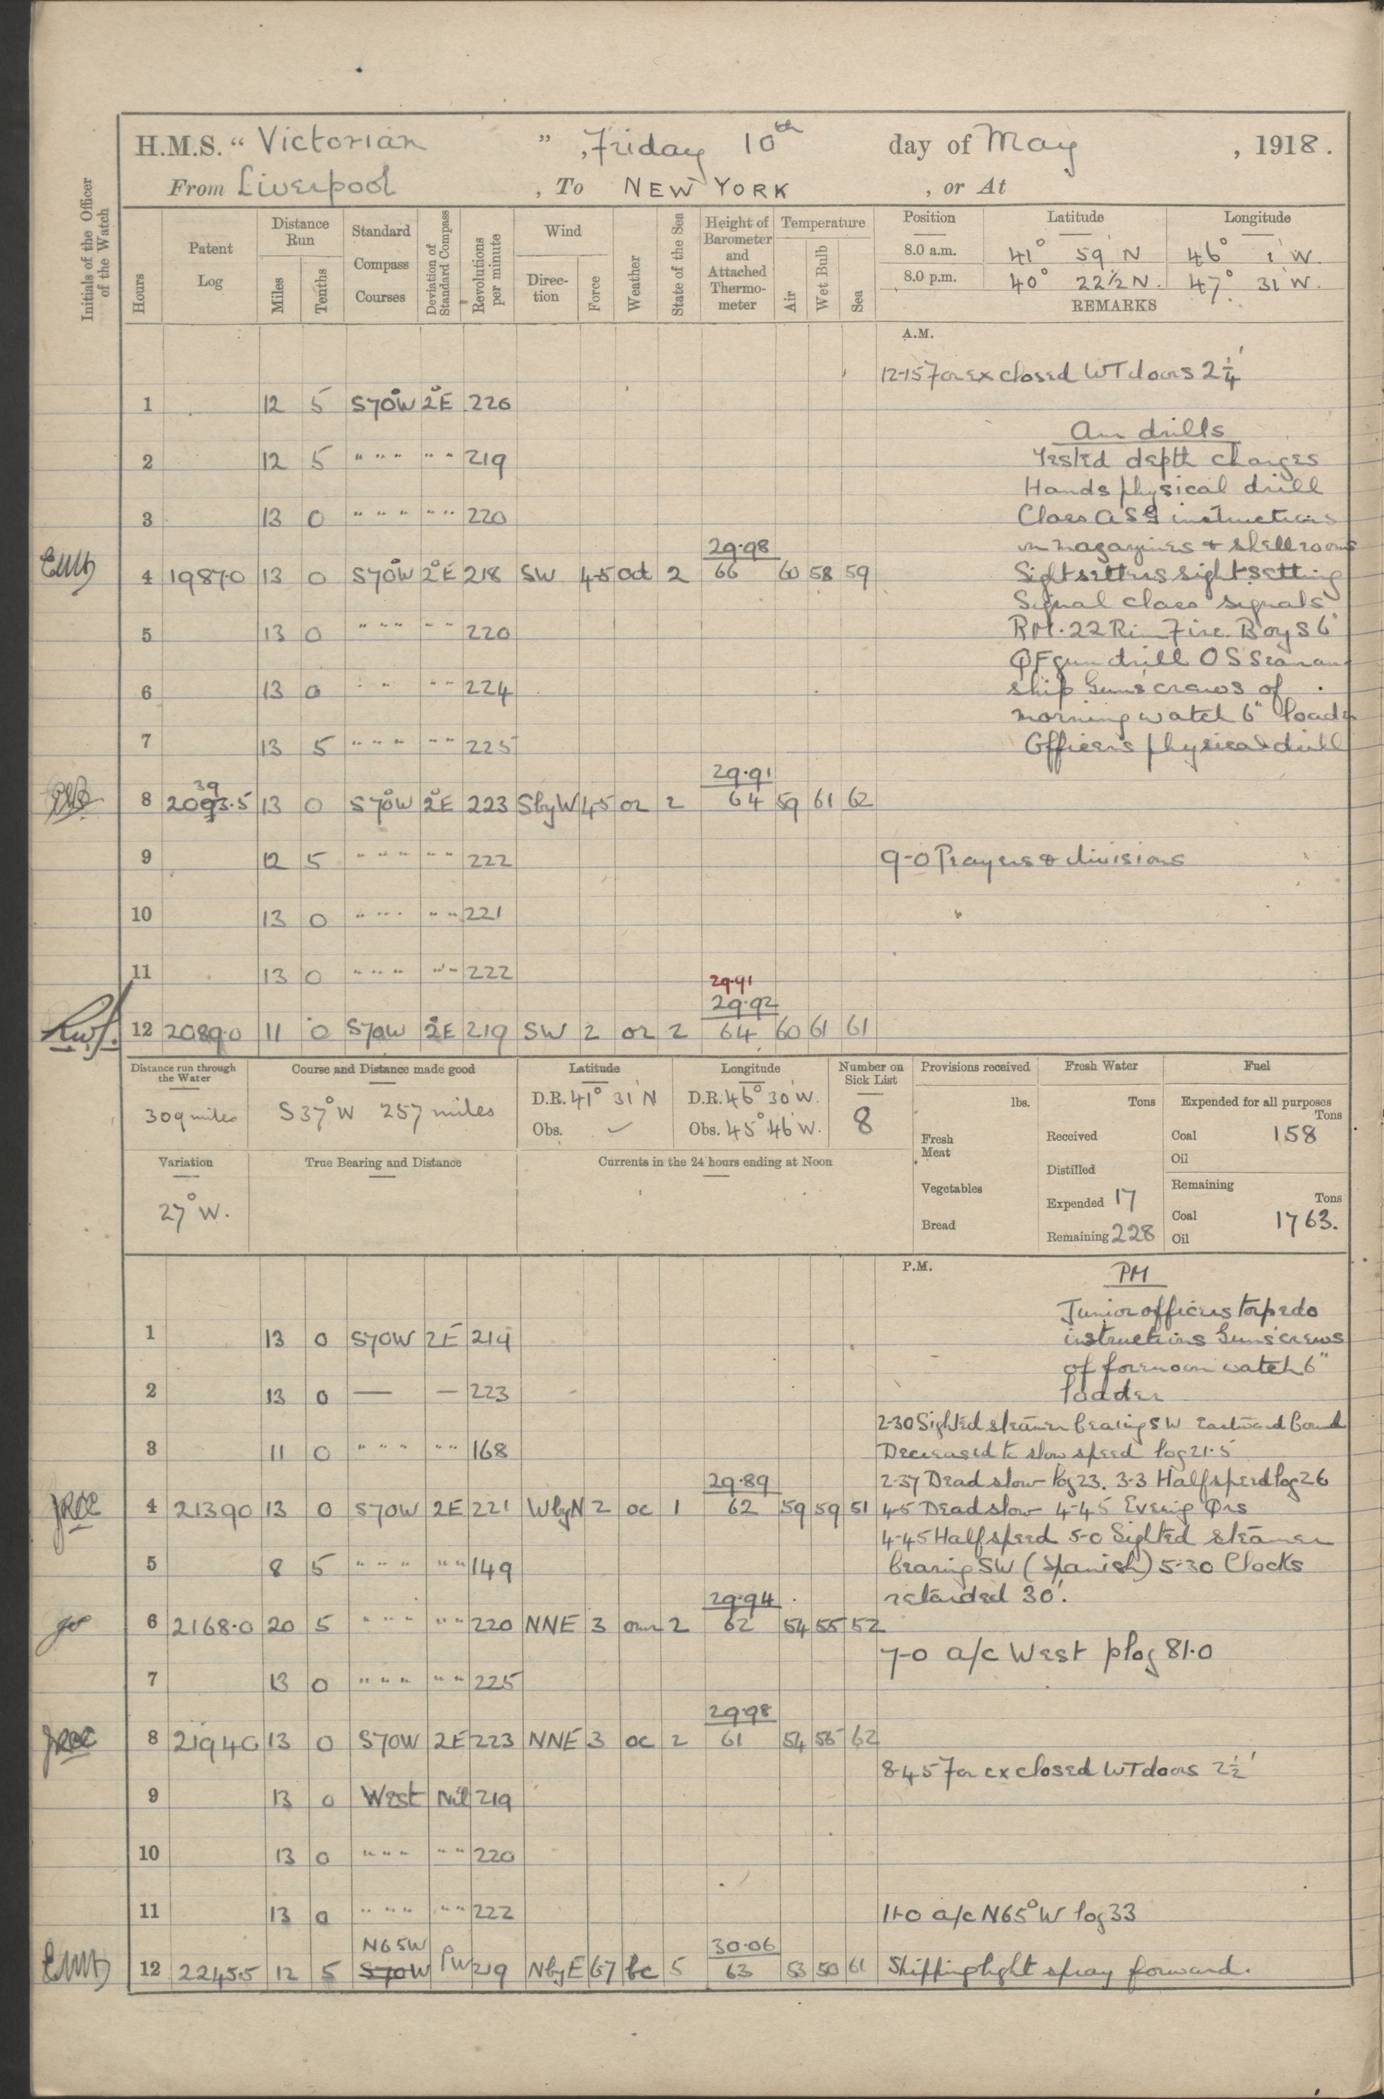 H.M.S. “ Victorian ” , Friday 10th day of May , 1918.
From Liverpool , To NEW YORK , or At
Initials of the Officer of the Watch
Hours
Patent Log
Distance Run
Miles
Tenths
Standard Compass Courses
Deviation of Standard Compass
Revolutions per minute
Wind
Direction
Force
Weather
State of the Sea
Height of Barometer and Attached Thermometer
Temperature
Air
Wet Bulb
Sea
Position Latitude Longitude
8.0 a.m. 41° 59' N 46° 1' W.
8.0 p.m. 40° 22½ N. 47° 31' W.
REMARKS
A.M.
12-15 For ex closed WT doors 2¼'
1 12 5 S70°W 2°E 226
Am drills
2 12 5 " " " " " 219
Tested depth charges
Hands physical drill
3 13 0 " " " " " 220
Class A S G instructions
29.98
on magazines & shellrooms
4 1987.0 13 0 S70°W 2°E 218 SW 4-5 od 2 66 60 58 59
Sightsetters sightsetting
Signal class signals
5 13 0 " " " " " 220
RM. 22 Rim Fire. Boys 6"
QF gun drill OS Seaman
6 13 0 " " " " 224
ship Guns crews of
morning watch 6" loader
7 13 5 " " " " " 225
Officers physical drill
29.91
39
8 2093.5 13 0 S70°W 2°E 223 SbyW 4-5 or 2 64 59 61 62
9 12 5 " " " " " 222
9-0 Prayers & divisions
10 13 0 " " " " " 221
11 13 0 " " " " " 222
29.91
29.92
12 2089.0 11 0 S70W 2°E 219 SW 2 or 2 64 60 61 61
Distance run through the Water
309 miles
Course and Distance made good
S37°W 257 miles
Latitude
D.R. 41° 31' N
Obs.
Longitude
D.R. 46° 30' W.
Obs. 45° 46' W.
Number on Sick List
8
Provisions received
lbs.
Fresh Meat
Vegetables
Bread
Fresh Water
Tons
Received
Distilled
Expended 17
Remaining 228
Fuel
Expended for all purposes
Tons
Coal 158
Oil
Remaining
Tons
Coal 1763.
Oil
Variation
27°W.
True Bearing and Distance
Currents in the 24 hours ending at Noon
P.M.
PM
Junior officers torpedo
1 13 0 S70W 2E 214
instructions Guns' crews
of forenoon watch 6"
2 13 0 — — 223
loader
2-30 Sighted steamer bearing SW Eastward bound
3 11 0 " " " " " 168
Decreased to slow speed log 21.5
29.89
2-37 Dead slow log 23. 3-3 Half speed log 26
4 2139.0 13 0 S70W 2E 221 WbyN 2 oc 1 62 59 59 51
4-5 Dead slow 4-45 Evening Qrs
4-45 Half speed 5-0 Sighted steamer
5 8 5 " " " " " 149
bearing SW (Spanish) 5-30 Clocks
retarded 30'.
29.94
6 2168.0 20 5 " " " " " 220 NNE 3 2 62 54 55 52
7-0 a/c West plog 81.0
7 13 0 " " " " " 225
29.98
8 2194.0 13 0 S70W 2E 223 NNE 3 oc 2 61 54 56 62
8-45 For ex closed WT doors 2½'
9 13 0 West Nil 219
10 13 0 " " " " " 220
11 13 0 " " " " " 222
11-0 a/c N65°W log 33
N65W
30.06
12 2245.5 12 5 S70W 1°W 219 NbyE 6-7 bc 5 63 53 50 61
Shipping light spray forward.